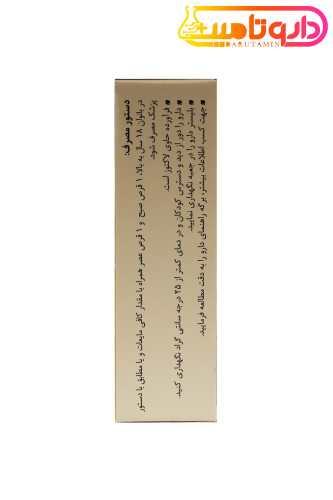 داروتامین
DARUTAMIN
دستور مصرف:
در بانوان ۱۸ سال به بالا، ۱ قرص صبح و ۱ قرص عصر همراه با مقدار کافی مایعات و یا مطابق با دستور
پزشک مصرف شود.
■ فرآورده حاوی لاکتوز است.
■ دارو را دور از دید و دسترس کودکان و در دمای کمتر از ۲۵ درجه سانتی گراد نگهداری کنید.
■ بلیستر دارو را در جعبه نگهداری نمایید.
■ جهت کسب اطلاعات بیشتر، برگه راهنمای دارو را به دقت مطالعه فرمایید.